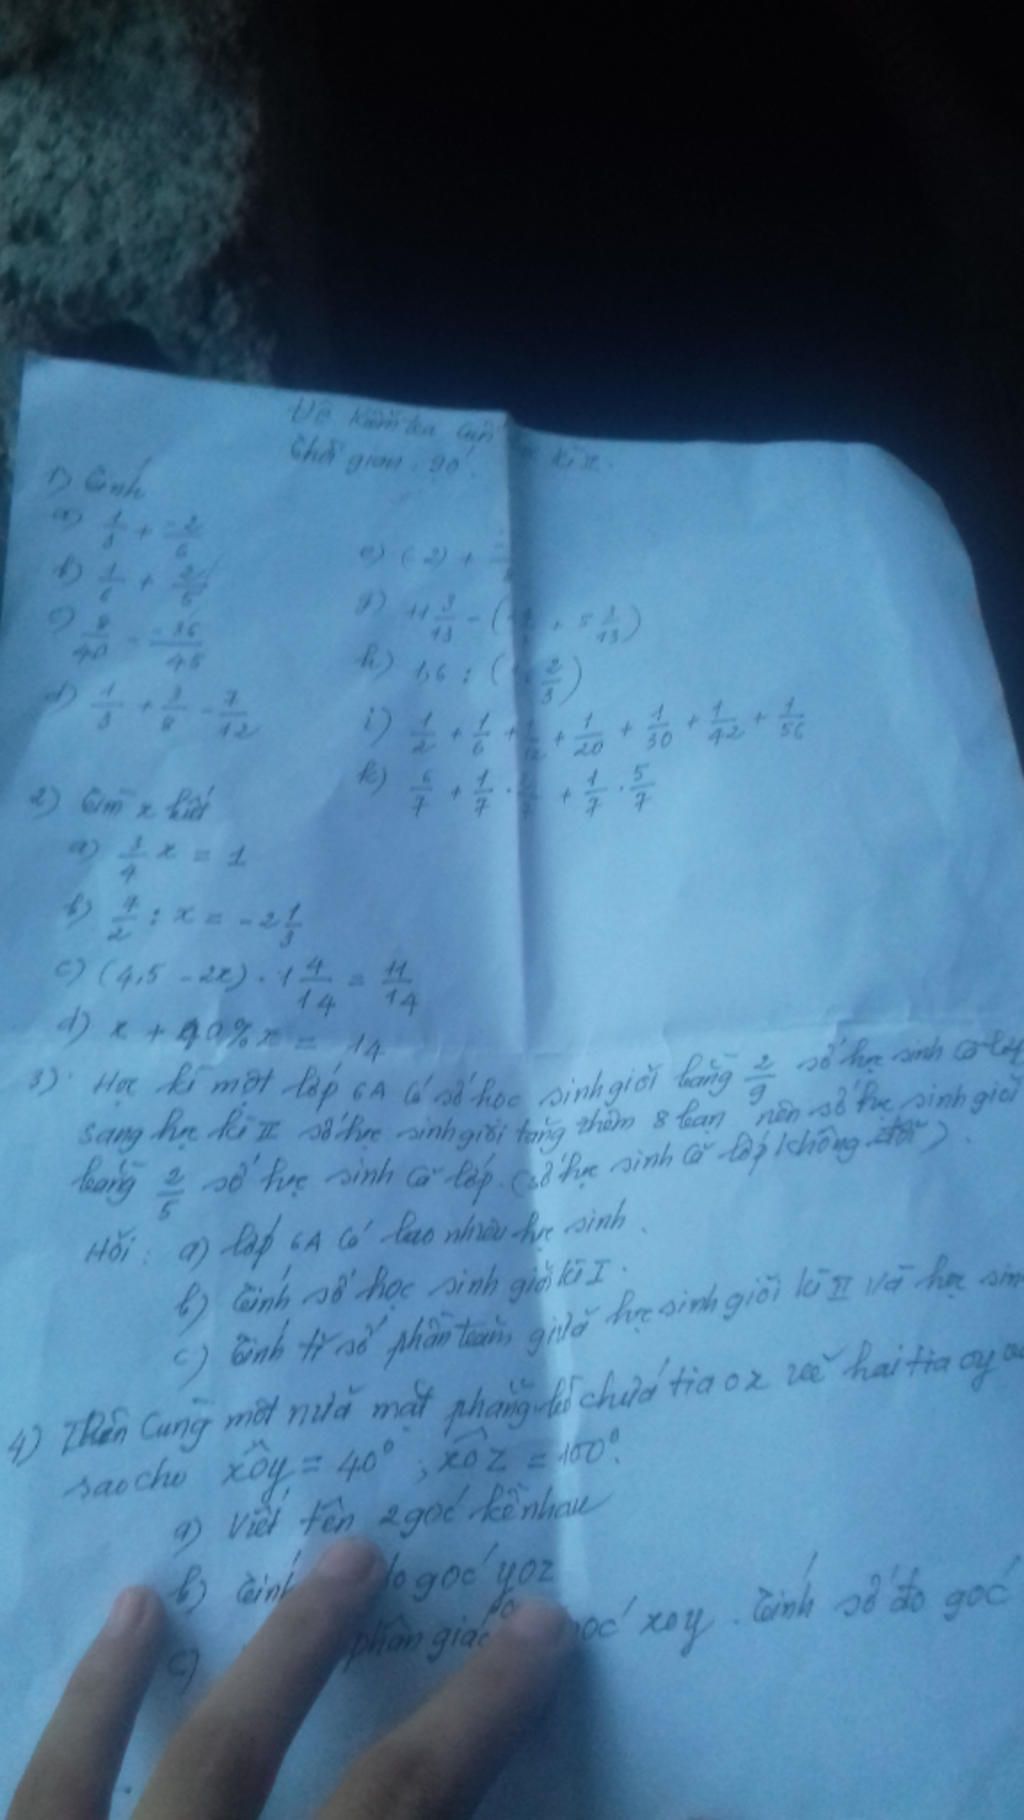 Đề kiểm tra cuối học kì II.
Thời gian: 90'.
1) Tính
a) 1/3 + -2/6
b) 1/6 + 2/6
c) 8/40 - -36/45
d) 1/3 + 3/8 - 7/12
e) (-2) +
g) 11 3/13 - ( + 5 3/13)
h) 1,6 : ( 2/3)
i) 1/2 + 1/6 + 1/12 + 1/20 + 1/30 + 1/42 + 1/56
k) 6/7 + 1/7 . + 1/7 . 5/7
2) Tìm x biết
a) 3/4 x = 1
b) 4/2 : x = -2 1/3
c) (4,5 - 2x) . 1 4/14 = 11/14
d) x + 40% x = 14
3) Học kì một lớp 6A có số học sinh giỏi bằng 2/9 số học sinh cả lớp
sang học kì II số học sinh giỏi tăng thêm 8 bạn nên số học sinh giỏi
bằng 2/5 số học sinh cả lớp. (số học sinh cả lớp không đổi).
Hỏi: a) lớp 6A có bao nhiêu học sinh.
b) Tính số học sinh giỏi kì I.
c) Tính tỉ số phần trăm giữa học sinh giỏi kì II và học sinh
4) Trên cùng một nửa mặt phẳng bờ chứa tia ox vẽ hai tia oy
sao cho xôy = 40°, xôz = 100°.
a) Viết tên 2 góc kề nhau
b) Tính đo góc yoz
c) phân giác góc xoy. Tính số đo góc